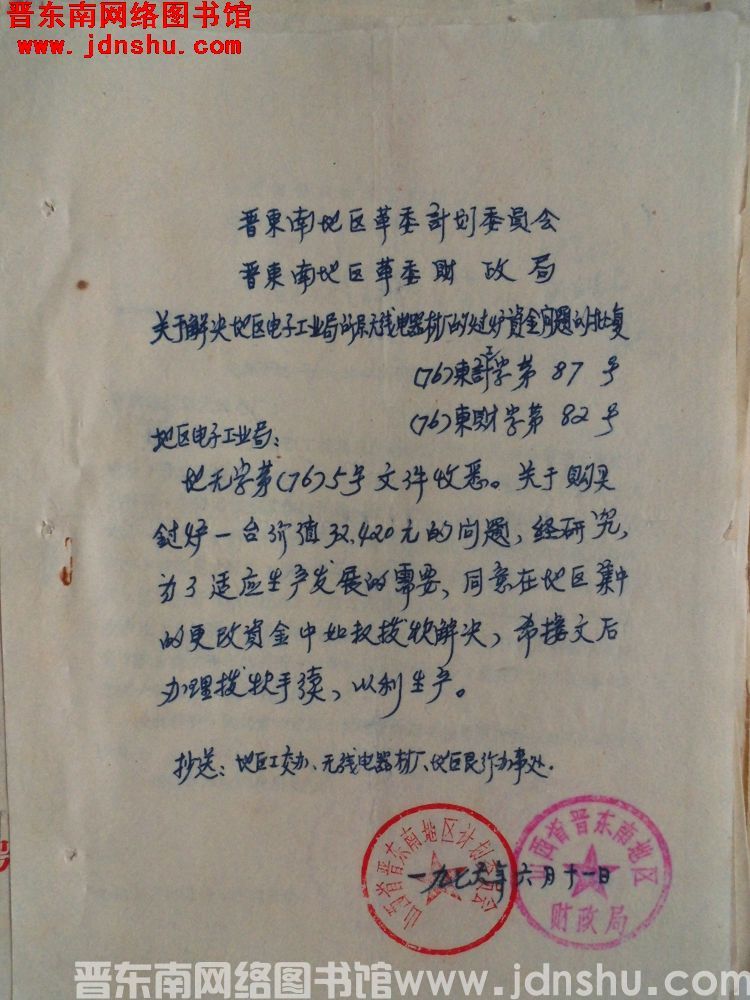 晋东南网络图书馆
www.jdnshu.com
晋東南地区革委計划委員会
晋東南地区革委財政局
关于解决地区电子工业局所属无线电器材厂的过炉資金问题的批复
(76)東計字第87号
(76)東財字第82号
地区电子工业局:
地无字第(76)5号文件收悉。关于购买
炉一台价值32,420元的问题,经研究,
为了适应生产发展的需要,同意在地区集中
的更改資金中如数拨款解决,希接文后
办理拨款手续,以利生产。
抄送:地区工交办、无线电器材厂、地区民行办事处.
一九七六年六月十一日
山西省晋东南地区计划委员会
山西省晋东南地区
财政局
晋东南网络图书馆www.jdnshu.com